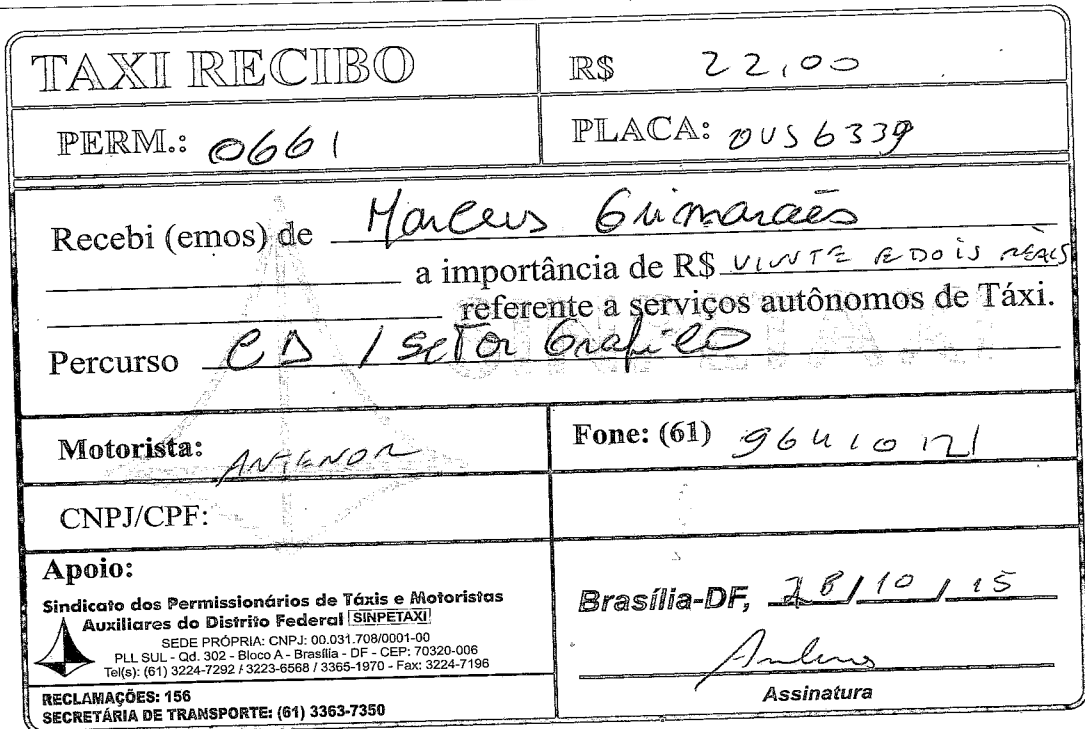 TAXI RECIBO
R$ 22,00
PERM.: 0661
PLACA: OVS 6339
Recebi (emos) de Marcus Guimarães
a importância de R$ VINTE E DOIS REAIS
referente a serviços autônomos de Táxi.
Percurso CD / Setor Grafico
Motorista: ANTENOR
Fone: (61) 96410121
CNPJ/CPF:
Apoio:
Sindicato dos Permissionários de Táxis e Motoristas
Auxiliares do Distrito Federal SINPETAXI
SEDE PRÓPRIA: CNPJ: 00.031.708/0001-00
PLL SUL - Qd. 302 - Bloco A - Brasília - DF - CEP: 70320-006
Tel(s): (61) 3224-7292 / 3223-6568 / 3365-1970 - Fax: 3224-7196
RECLAMAÇÕES: 156
SECRETÁRIA DE TRANSPORTE: (61) 3363-7350
Brasília-DF, /10/15
Assinatura